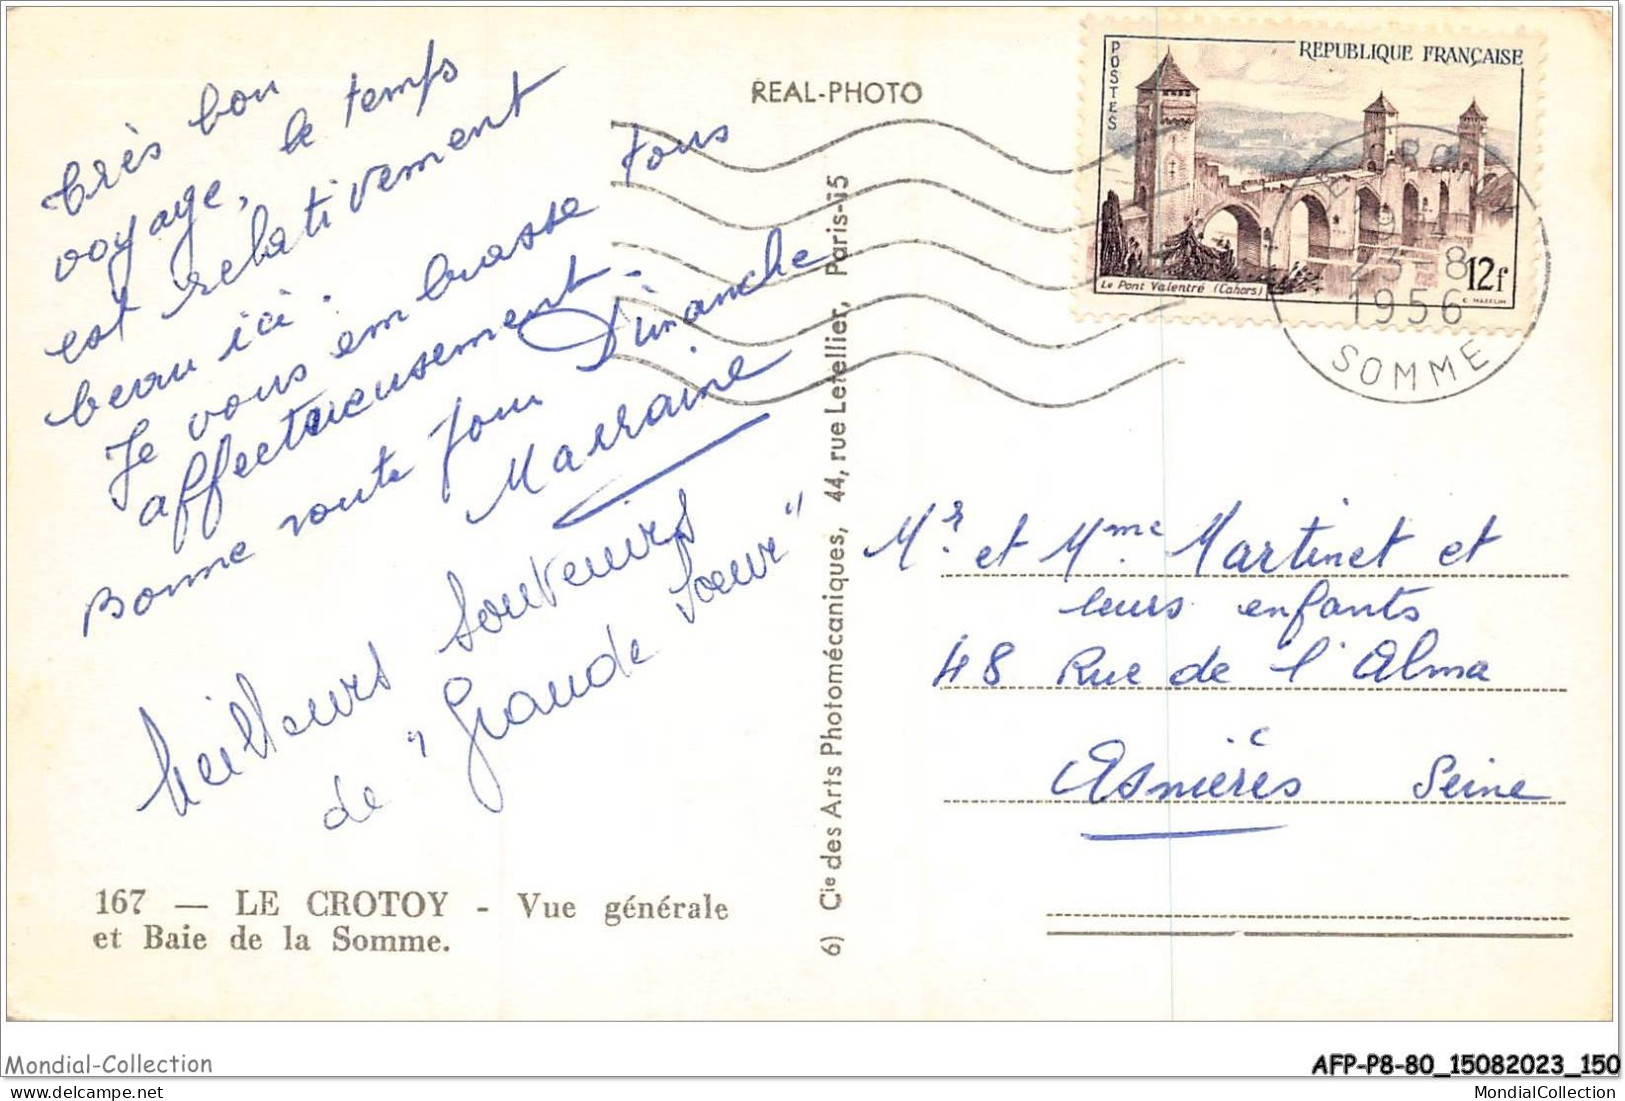 REAL-PHOTO
Très bon
voyage, le temps
est relativement
beau ici.
Je vous embrasse tous
affectueusement.
Bonne route pour Dimanche
Marraine
Meilleurs souvenirs
de "Grande Soeur"
167 — LE CROTOY - Vue générale
et Baie de la Somme.
6) Cie des Arts Photomécaniques, 44, rue Letellier, Paris-15
POSTES
REPUBLIQUE FRANÇAISE
Le Pont Valentré (Cahors)
12f
23-8
1956
SOMME
Mr. et Mme Martinet et
leurs enfants
48 Rue de l'Alma
Asnières Seine
Mondial-Collection
AFP-P8-80_15082023_150
www.delcampe.net
MondialCollection